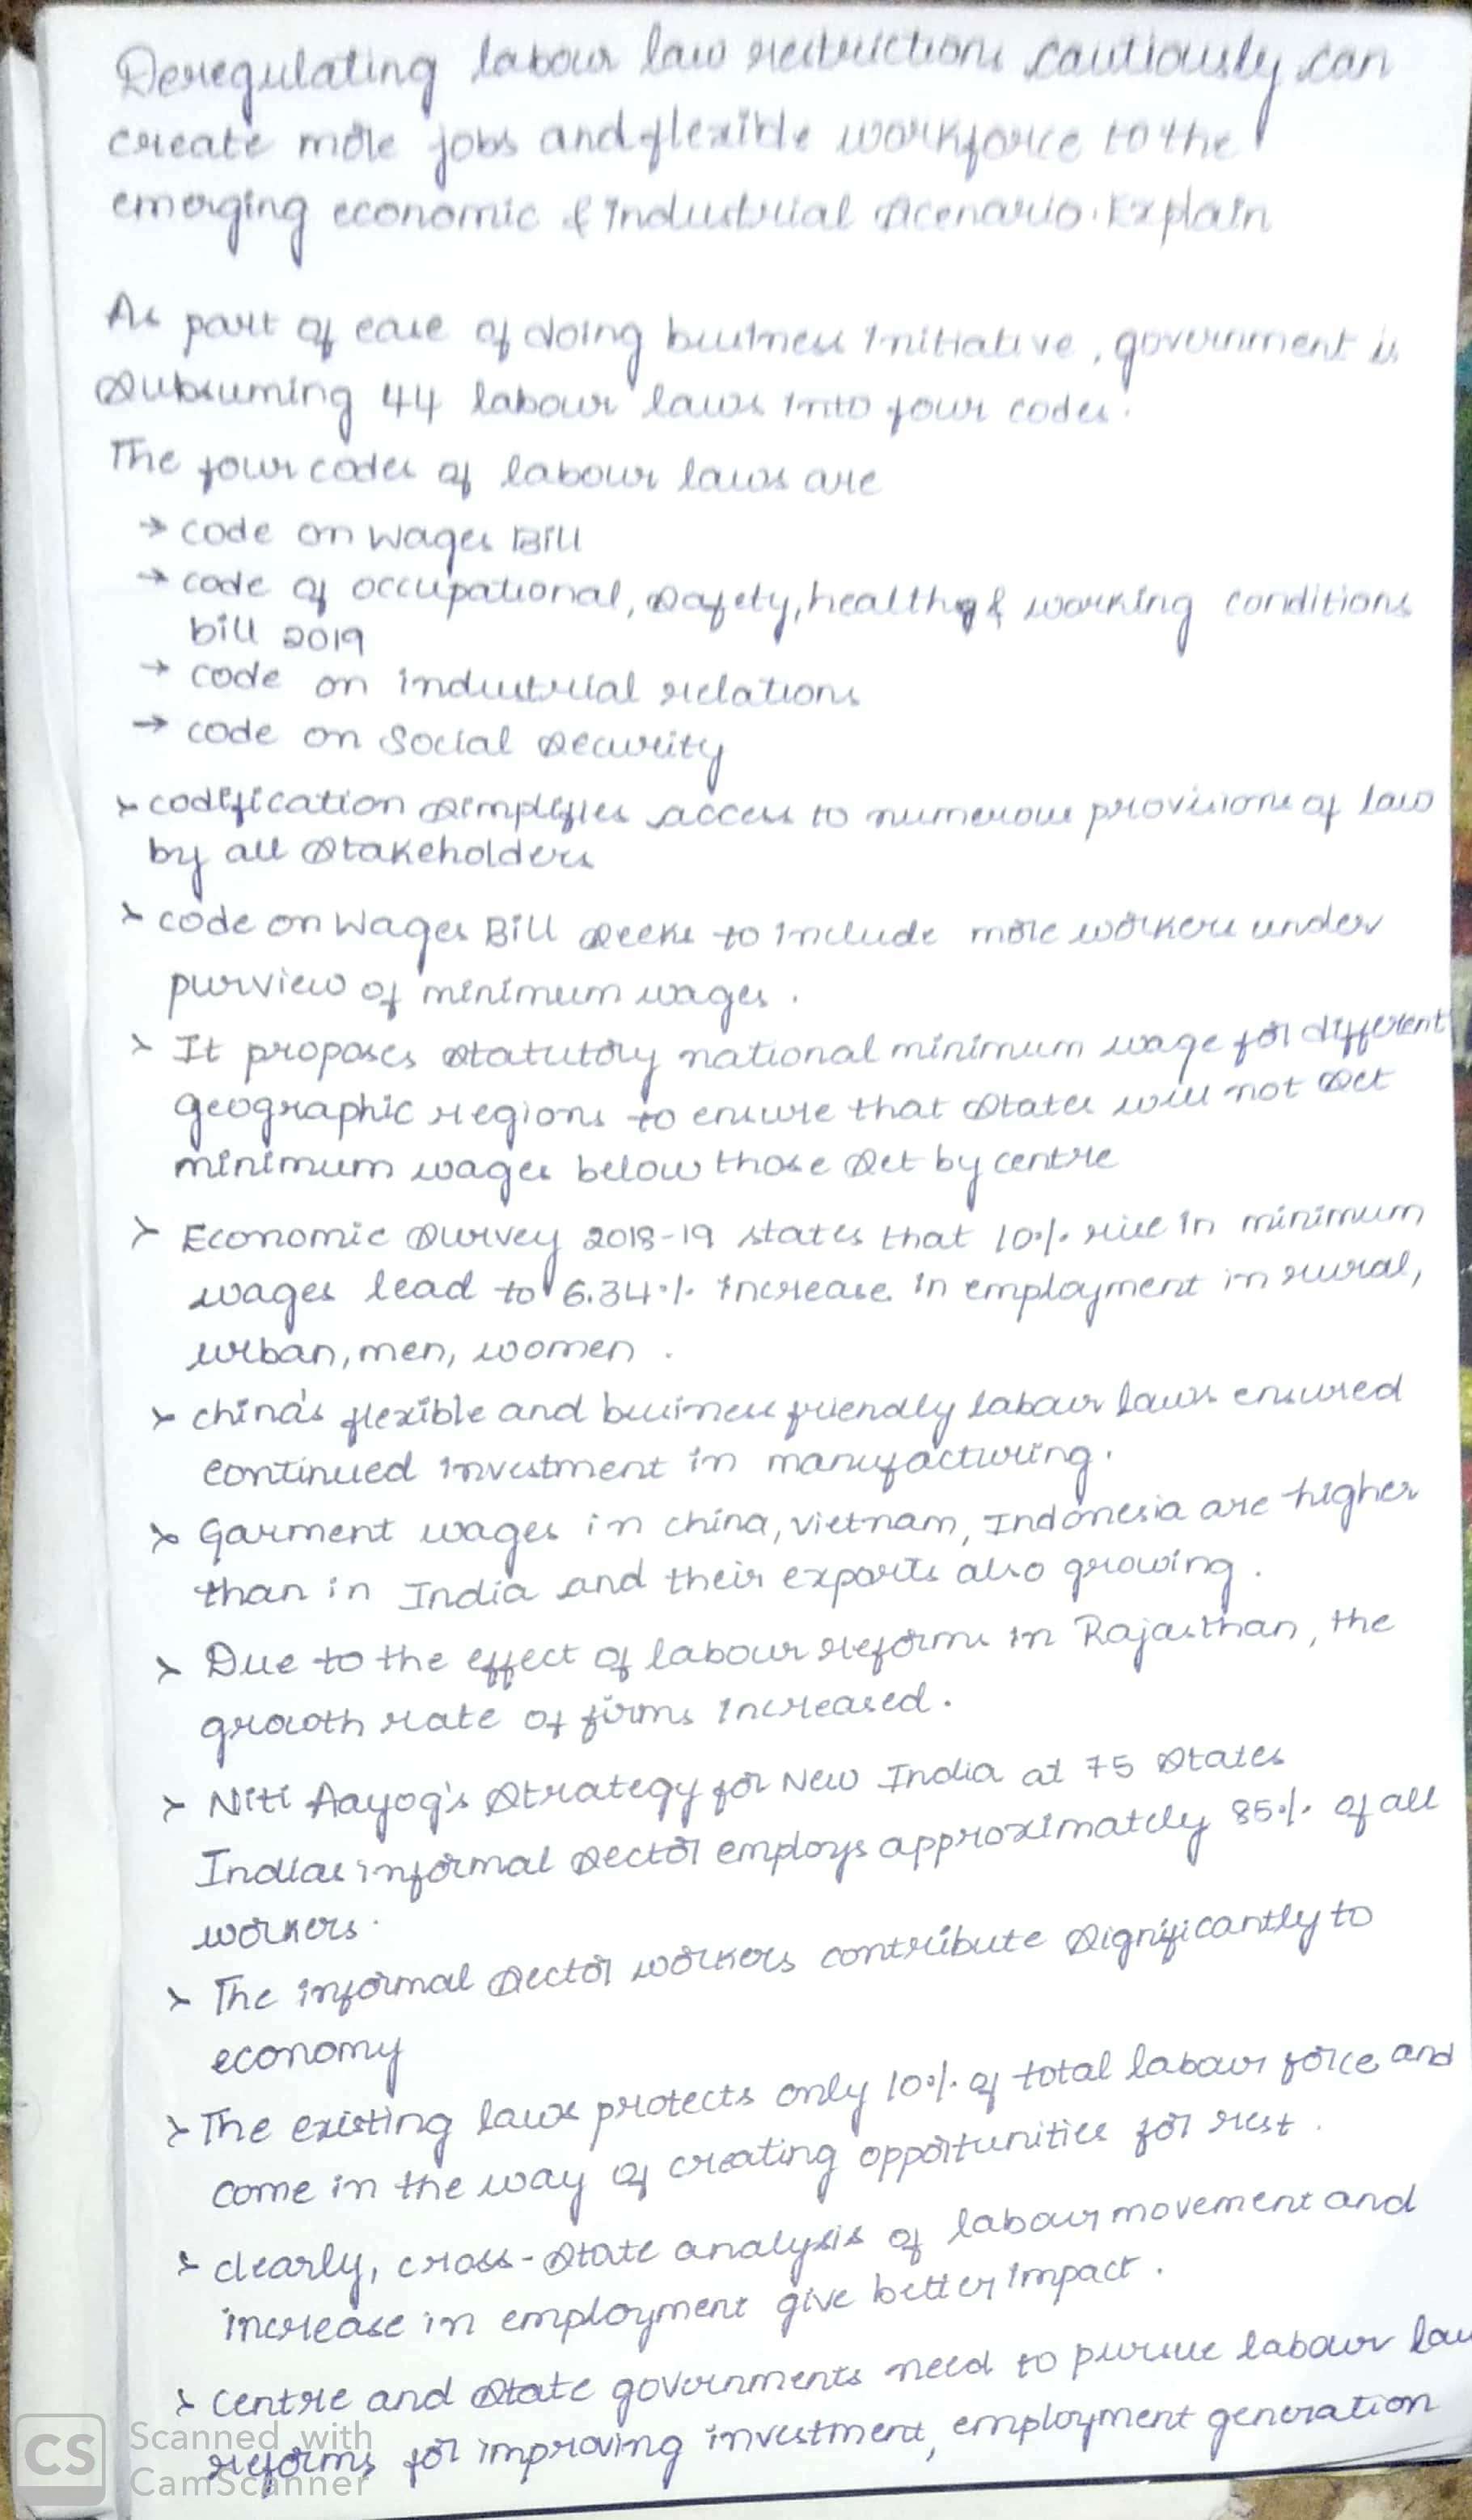 Deregulating labour law restrictions cautiously can
create more jobs and flexible workforce to the
emerging economic & industrial scenario. Explain
As part of ease of doing business initiative, government is
subsuming 44 labour laws into four codes.
The four codes of labour laws are
→ code on Wages Bill
→ code of occupational, safety, health & working conditions
bill 2019
→ code on industrial relations
→ code on Social security
➢ codification simplifies access to numerous provisions of law
by all stakeholders
➢ code on Wages Bill seeks to include more workers under
purview of minimum wages.
➢ It proposes statutory national minimum wage for different
geographic regions to ensure that states will not set
minimum wages below those set by centre
➢ Economic survey 2018-19 states that 10% rise in minimum
wages lead to 6.34% increase in employment in rural,
urban, men, women.
➢ china's flexible and business friendly labour laws ensured
continued investment in manufacturing.
➢ Garment wages in china, vietnam, Indonesia are higher
than in India and their exports also growing.
➢ Due to the effect of labour reforms in Rajasthan, the
growth rate of firms increased.
➢ Niti Aayog's strategy for New India at 75 states
Indias informal sector employs approximately 85% of all
workers.
➢ The informal sector workers contribute significantly to
economy
➢ The existing laws protects only 10% of total labour force and
come in the way of creating opportunities for rest.
➢ clearly, cross-state analysis of labour movement and
increase in employment give better impact.
➢ centre and state governments need to pursue labour law
reforms for improving investment, employment generation
CS Scanned with
CamScanner